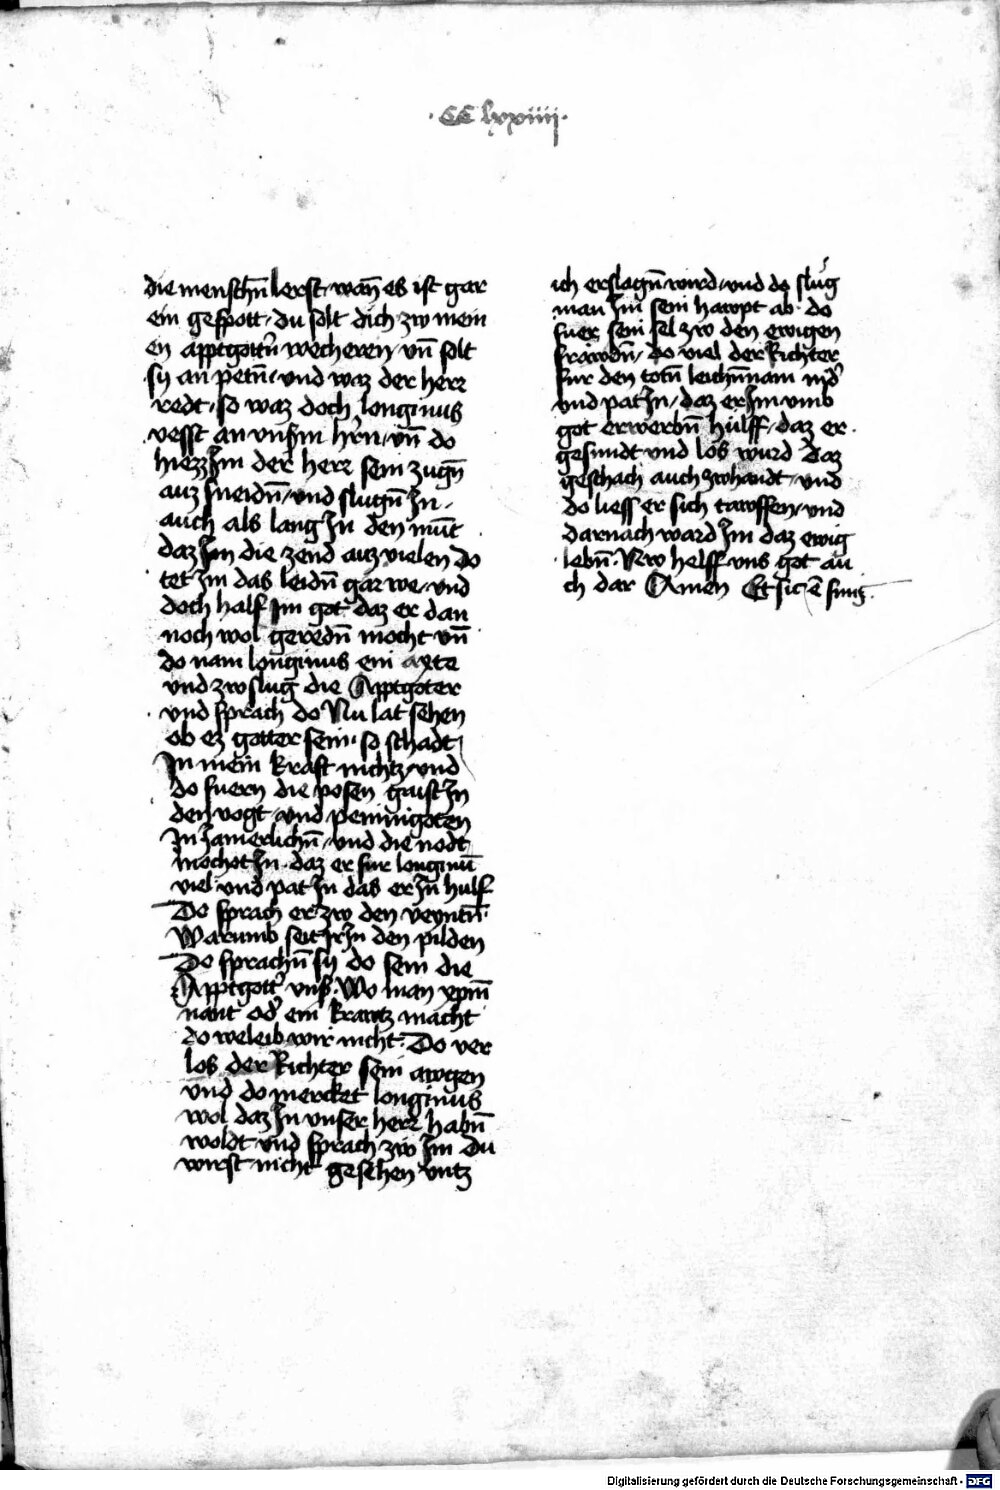 · CC lxxiiii ·
die menschn̄ lerst / wan̄ es ist gar
ein gespott / du solt dich zw mein
en apptgottn̄ wecheren / vn̄ solt
sy an petn̄ / vnd waz der herr
redt / so waz doch longinus
vesst an vnsm̄ hr̄n / vn̄ do
hiezz Im der herr sein zugn̄
auz sneidn̄ / vnd slugn̄ In /
auch als lang In den mūt
daz Im die zend auz vielen do
tet Im das leidn̄ gar we / vnd
doch half Im got daz er dan
noch wol geredn̄ mocht vn̄
do nam longinus ein axte
vnd zwslug die Apptgoter
vnd sprach do Nu lat sehen
ob ez gotter sein / so schadt
In mein kraft nichtz / vnd
do fuern die posen gaist In
den vogt / vnd peinnigoten
In Jamerlichn̄ / vnd die nodt
mochot In daz er fur longinū
viel vnd pat In das er In hulf
Do sprach er zw den veyntn̄
Warumb seit Ir In den pilden
Do sprachn̄ sy do sein die
Apptgott' vns' Wo man xpm̄
nant od' ein krawtz macht
do weleib wir nicht Do ver
los der Richter sein awgen
vnd do mercket longinus
wol daz In vnser herr habn̄
woldt vnd sprach zw Im Du
wirst nicht gesehen vntz
ich erslagn̄ wird / vnd do slug
man Im sein hawpt ab do
fuer sein sel zw den ewigen
frawdn̄ / do viel der Richter
fur den totn̄ leichn̄nam nid'
vnd pat In / daz er Im vmb
got erwerbn̄ hulff / daz er
gesundt vnd los wurd daz
geschach auch zwhandt / vnd
do liess er sich tawffen / vnd
darnach ward Im daz ewig
lebn̄ Nw helff vns got au
ch dar Amen Et sic ē finis